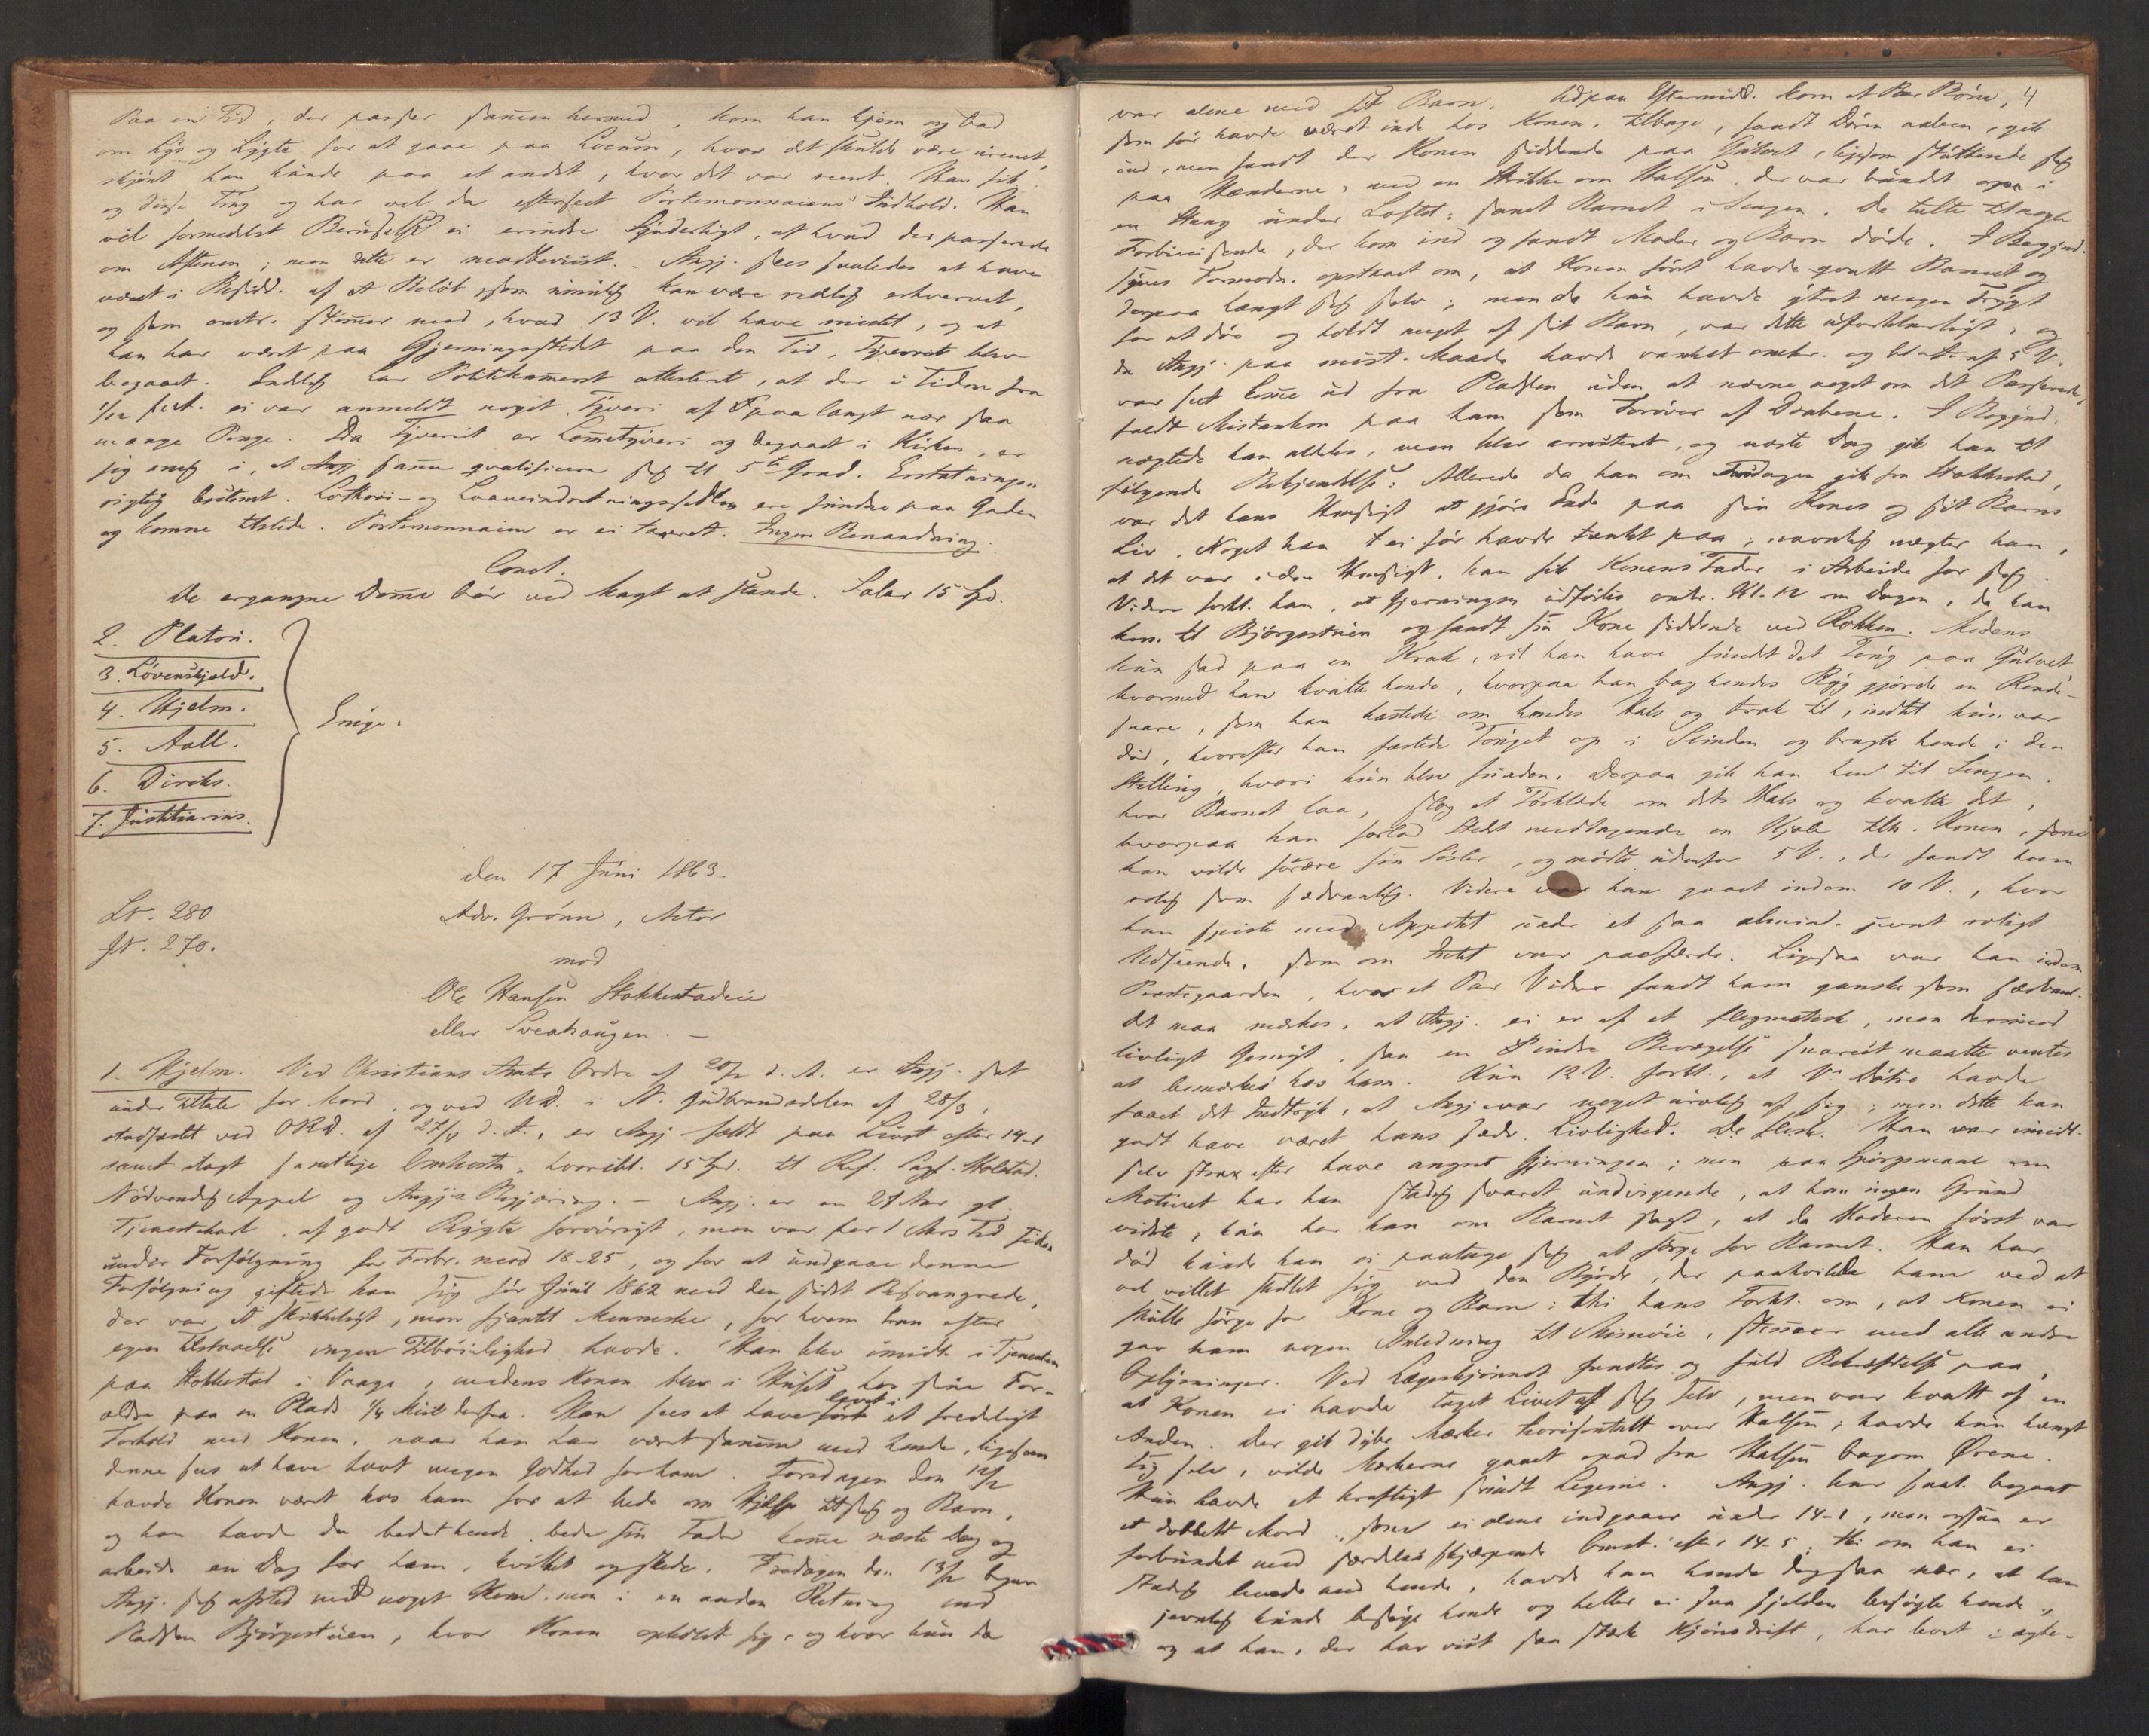 Paa en Tid, der passer sammen hermed, kom han hjem og bad
om Lys og Lygte for at gaae paa Locum, hvor det skulde være urenet,
skjønt han kunde paa et andet, hvor det var reent. Han fik
og disse Ting og har vel da efterseet Portemonnaiens Indhold. Han
vil formedelst Beruselse ei erindre Synderligt, af hvad der passerede
om Aftenen; men dette er modbeviist. Angj. sees saaledes at have
været i Besidd. af et Beløb, som umulig kan være redlig erhvervet,
og som omtr. stemmer med, hvad 13 V. vil have mistet, og at
han har været paa Gjerningsstedet paa den Tid, Tyveriet blev
begaaet. Endelig har Politikammeret attesteret, at der i Tiden fra
1/12 ei var anmeldt noget Tyveri af paa langt nær saa
mange Penge. Da Tyveriet er Lommetyveri og begaaet i Kirken, er
jeg enig i, at Angj. qvalificerer sig til 5te Grad. Erstatningen
rigtig bestemt. Lotteri- og ere fundne paa Gaden
og komne tilstede. Portemonnaien er ei taxeret. Ingen Bemærkning.
Concl.
De ergangne Domme bør ved Magt at stande. Salær 15 Spd.
2. Platou.
3. Løvenskjold.
4. Hjelm.
5. Aall.
6. Diriks.
7. Justitiarius.
Enige.
den 17 Juni 1863.
Lt. 280
Jt. 270.
Adv. Grønn, Actor
mod
Ole Hansen Stokkestadeie
eller Sveahaugen. —
1. Hjelm. Ved Christians Amts Ordre af 20/2 d. A. er Angj. sat
under Tiltale for Mord, og ved UD. i N. Gudbrandsdalen af 28/3,
stadfæstet ved OKD. af 27/4 d. A., er Angj. fældt paa Livet efter 14-1
samt ilagt samtlige Omkostn., hvoribl. 15 Spd. til Def. Sagf. Holstad.
Nødvendig Appel og Angj.s Begjæring. — Angj. er en 27 Aar gl.
Tjenestekarl, af godt Rygte forøvrigt, men var for 1 Aars Tid siden
under Forfølgning for Forbr. mod 18-25, og for at undgaae denne
Forfølgning giftede han sig før Juul 1862 med den sidst Besvangrede,
der var et skikkeligt, men sjantet Menneske, for hvem han efter
egen Tilstaaelse ingen Tilbøielighed havde. Han blev imidl. i Tjenesten
paa Stokkestad i Vaage, medens Konen blev i Huset hos sine For-
ældre paa en Plads 1/4 Miil derfra. Han sees at have levet i et fredeligt
Forhold med Konen, naar han har været sammen med hende, ligesom
denne sees at have havt megen Godhed for ham. Torsdagen den 12/2
havde Konen været hos ham for at bede om Hjelp til sig og Barn,
og han havde da bedet hende bede sin Fader komme næste Dag og
arbeide en Dag for ham, hvilket og skede. Fredagen den 13/2 begav
Angj. sig afsted med noget Korn, men i en anden Retning end
Pladsen Bjørgestuen, hvor Konen opholdt sig, og hvor hun da
4
var alene med sit Barn. Udpaa Eftermidd. kom et Par Børn,
som før havde været inde hos Konen, tilbage, fandt Døren aaben, gik
ind, men fandt der Konen siddende paa Gulvet, ligesom støttende sig
paa Hænderne, med en Strikke om Halsen, der var bundet op i
en Stang under Loftet, samt Barnet i Sengen. De tilkaldte nogle
Forbireisende, der kom ind og fandt Moder og Barn døde. I Begynd.
synes Formodn. opstaaet om, at Konen først havde qvalt Barnet og
derpaa hængt sig selv; men da hun havde ytret megen Frygt
for at døe og holdt meget af sit Barn, var dette uforklarligt, og
da Angj. paa mist. Maade havde vanket omkr. og bl. A. af 5 V.
var seet komme ud fra Pladsen uden at nævne noget om det Passerede,
faldt Mistanken paa ham som Udøver af Drabene. I Begynd.
nægtede han aldeles, men blev arresteret, og næste Dag gik han til
følgende Bekjendelse: Allerede da han om Fredagen gik fra Stokkestad,
var det hans Hensigt at gjøre Ende paa sin Kones og sit Barns
Liv, Noget han ei før havde tænkt paa; navnlig nægter han,
at det var i den Hensigt, han fik Konens Fader i Arbeide for sig.
Videre forkl. han, at Gjerningen udførtes omtr. Kl. 12 om Dagen, da han
kom til Bjørgestuen og fandt sin Kone siddende ved Rokken. Medens
hun sad paa en Krak, vil han have fundet det Toug paa Gulvet,
hvormed han kvalte hende, hvorpaa han bag hendes Ryg gjorde en Rende-
snare, som han kastede om hendes Hals og trak til, indtil hun var
død, hvorefter han fæstede Touget op i Slinden og bragte hende i den
Stilling, hvori hun blev funden. Derpaa gik han hen til Sengen,
hvor Barnet laa, slog et Tørklæde om dets Hals og kvalte det,
hvorpaa han forlod Stedet medtagende en Kjole tilh. Konen, som
han vilde forære sin Søster, og mødte udenfor 5 V., der fandt ham
rolig som sædvanlig. Videre var han gaaet indom 10 V., hvor
han spiste med Appetit under et saa almind. jevnt roligt
Udseende, som om Intet var paafærde. Ligesaa var han indom
Prestegaarden, hvor et Par Vidner fandt ham ganske som sædvanl.
Det maa mærkes, at Angj. ei er af et flegmatisk, men derimod
livligt Gemyt, saa en indre Bevægelse snarest maatte ventes
at bemærkes hos ham. Kun 12 V. forkl., at V. Døtre havde
faaet det Indtryk, at Angj. var noget urolig af sig; men dette kan
godt have været hans sædv. Livlighed. Han var imidl.
selv strax efter have angret Gjerningen; men paa Spørgsmaal om
Motivet har han stadig svaret undvigende, at han ingen Grund
vidste, kun har han om Barnet sagt, at da Moderen først var
død kunde han ei paatage sig at sørge for Barnet. Han har
vel villet skille sig ved den Byrde, der paahvilede ham ved at
skulle sørge for Kone og Barn; thi hans Forkl. om, at Konen ei
gav ham nogen Anledning til Misnøie, stemmer med alle andre
Oplysninger. Ved Lægeskjønnet fandtes og fuld Bekræftelse paa,
at Konen ei havde taget Livet af sig selv, men var kvalt af en
Anden. Der gik dybe Mærker horisontalt over Halsen; havde hun hængt
sig selv, vilde Mærkerne gaaet opad fra Halsen bagom Ørene.
Hun havde et kraftigt sundt Legeme. Angj. har saal. begaaet
et dobbelt Mord, som ei alene indgaaer under 14-1, men ogsaa er
forbundet med særdeles skjærpende Omst. efter 14-5; thi om han ei
stadig levede med hende, havde han hende dog saa nær, at han
jevnlig kunde besøge hende og heller ei saa sjelden besøgte hende,
og at han, der har viist saa stærk Kjønsdrift, har levet i ægte-